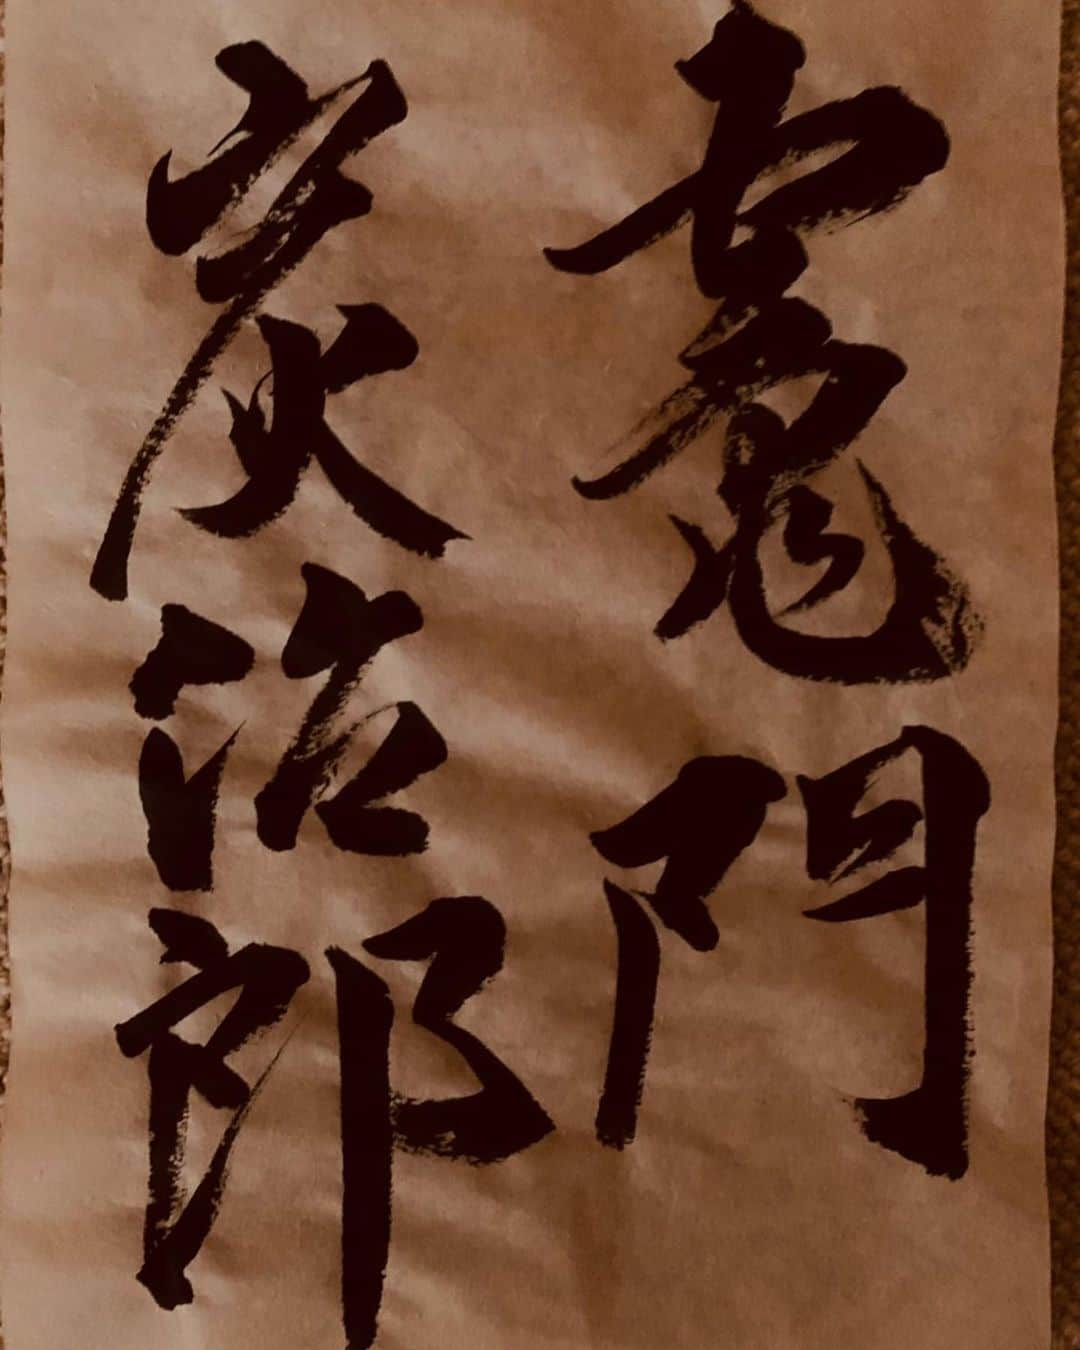 竈門
炭治郎